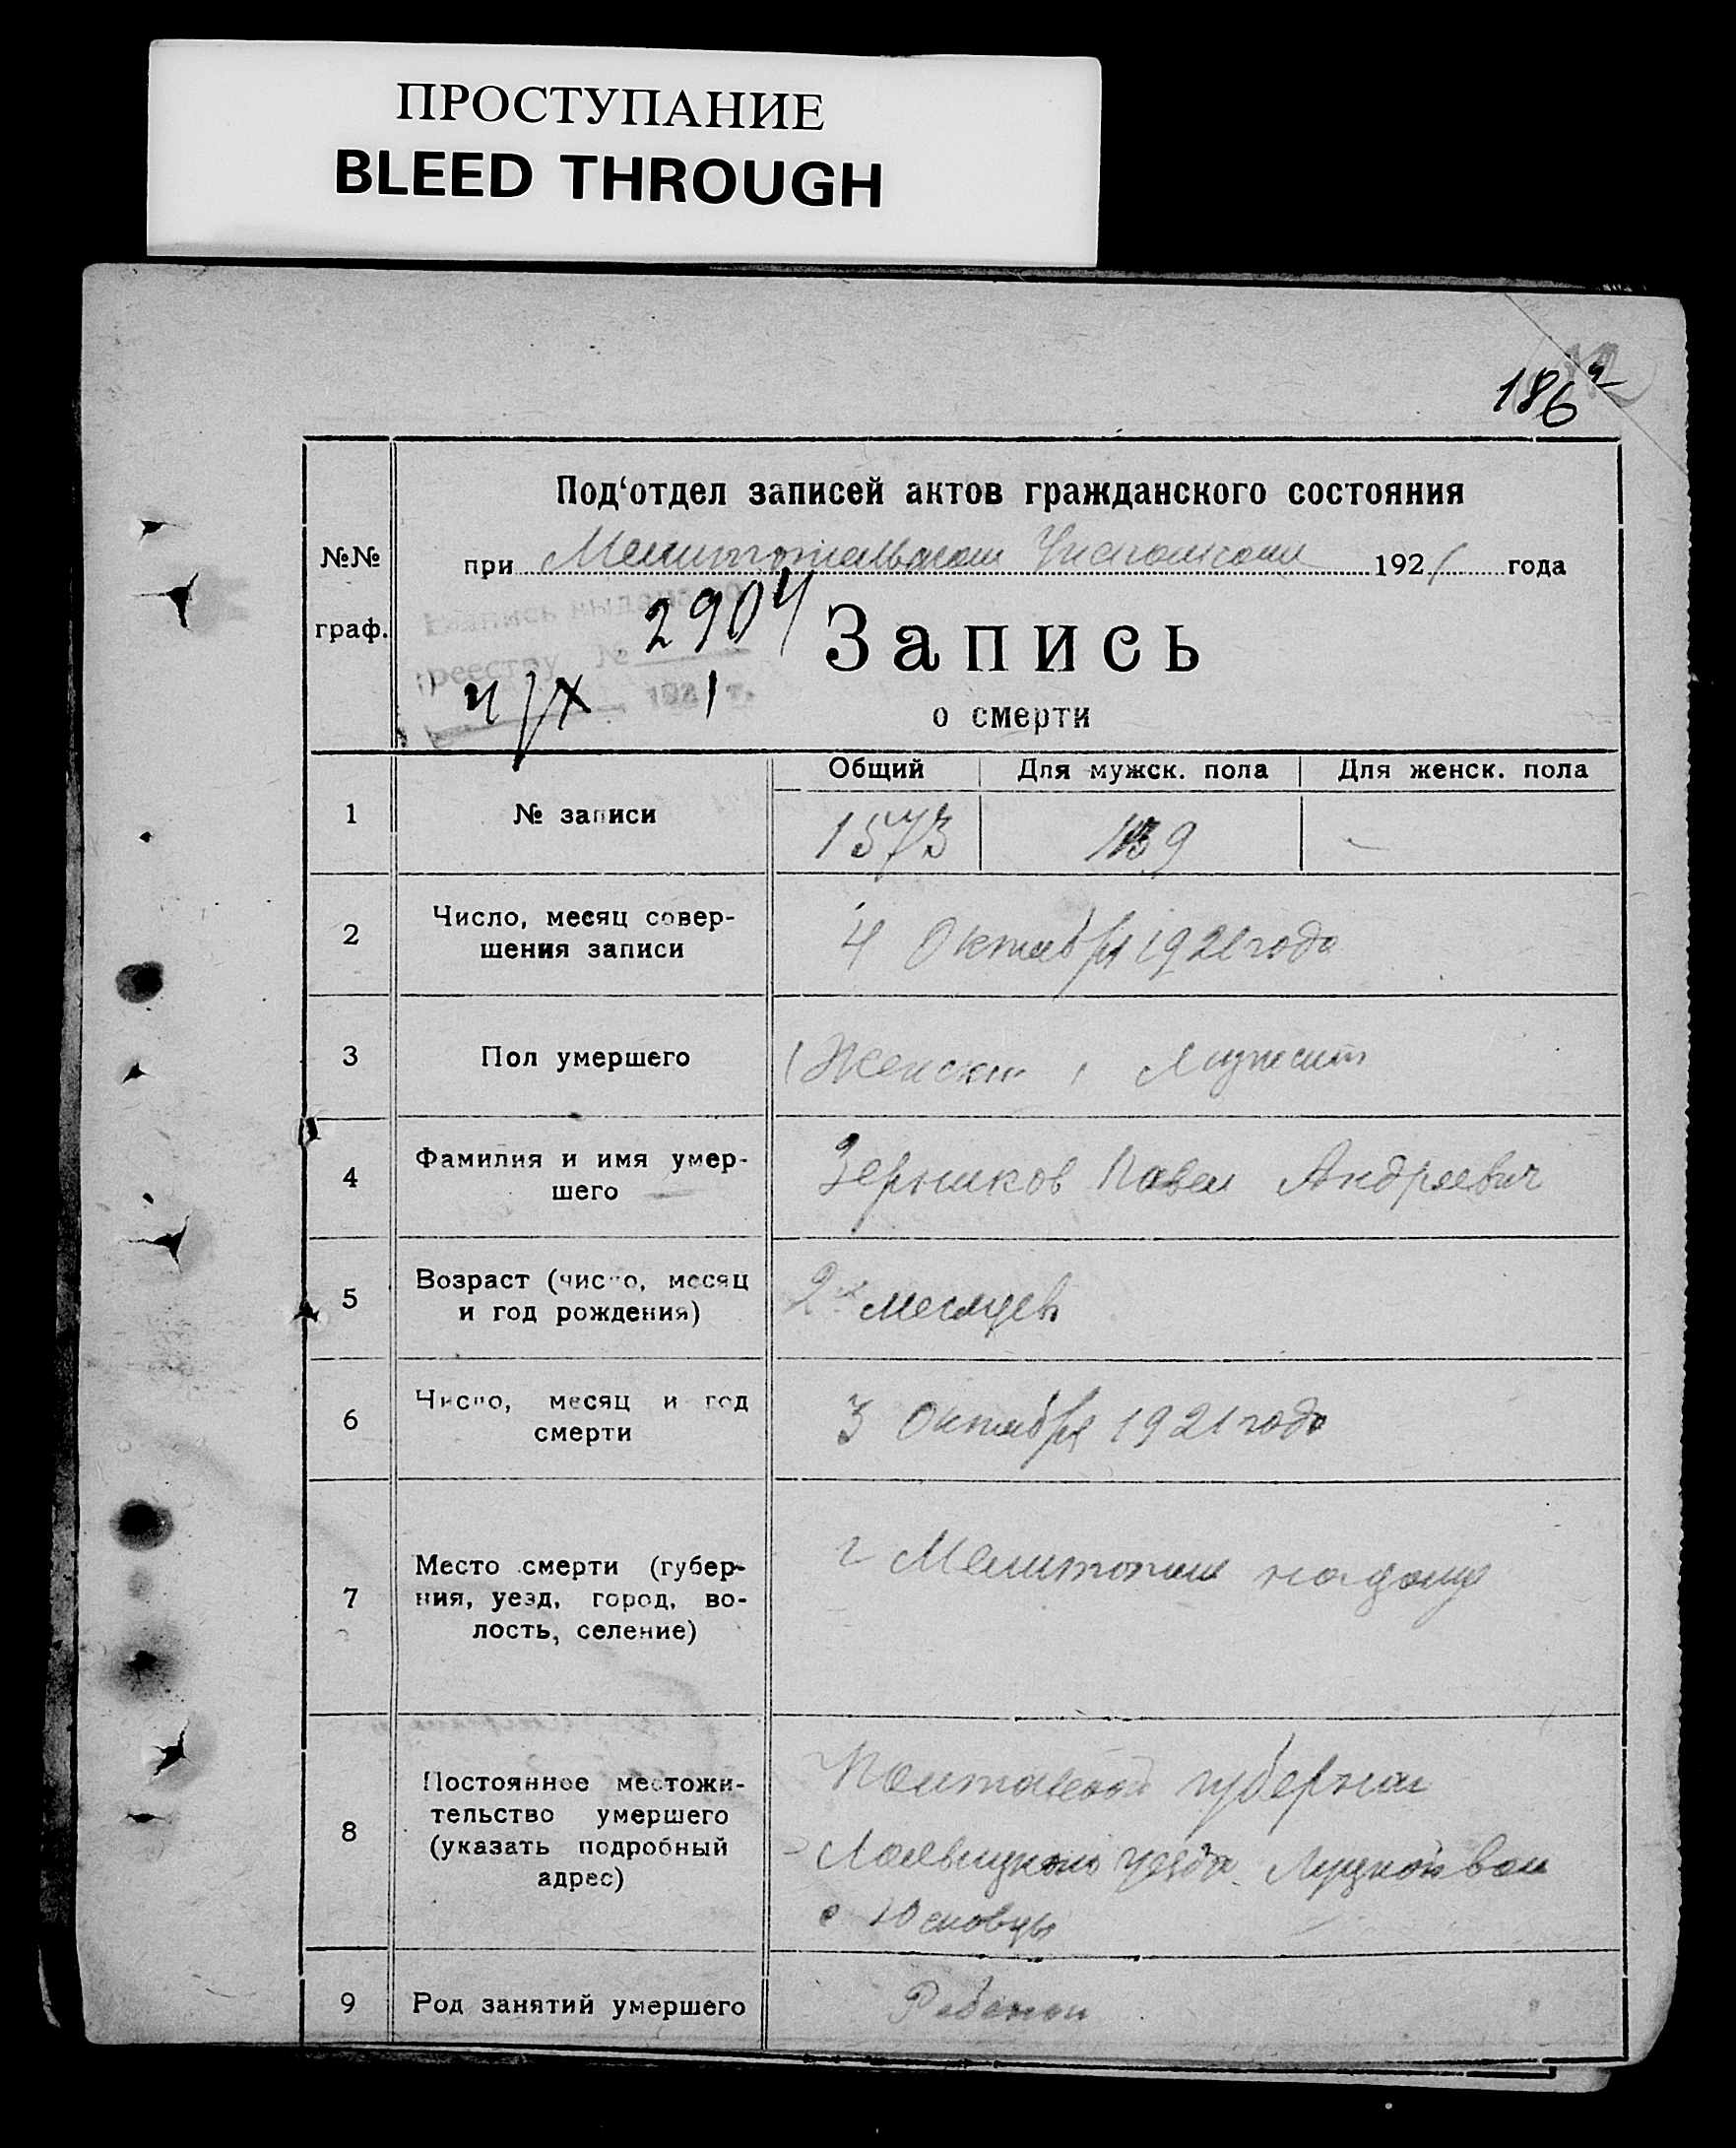 ПРОСТУПАНИЕ
BLEED THROUGH
186
Под‘отдел записей актов гражданского состояния
при Мелитопольском Исполкоме 1921 года
№№
граф.
Запись выдана по
реестру № 2904
4/X 1921 г.
Запись
о смерти
Общий Для мужск. пола Для женск. пола
1 № записи 1573 9 —
2 Число, месяц совер-
шения записи
4 Октября 1921 года
3 Пол умершего (Женский) Мужской
4 Фамилия и имя умер-
шего
Зерников Павел Андреевич
5 Возраст (число, месяц
и год рождения)
2х месяцев
6 Число, месяц и год
смерти
3 Октября 1921 года
7 Место смерти (губер-
ния, уезд, город, во-
лость, селение)
г Мелитополь на дому
8 Постоянное местожи-
тельство умершего
(указать подробный
адрес)
Полтавской губернии
уезда Луцкой вол
с Юсковцы
9 Род занятий умершего Ребенок